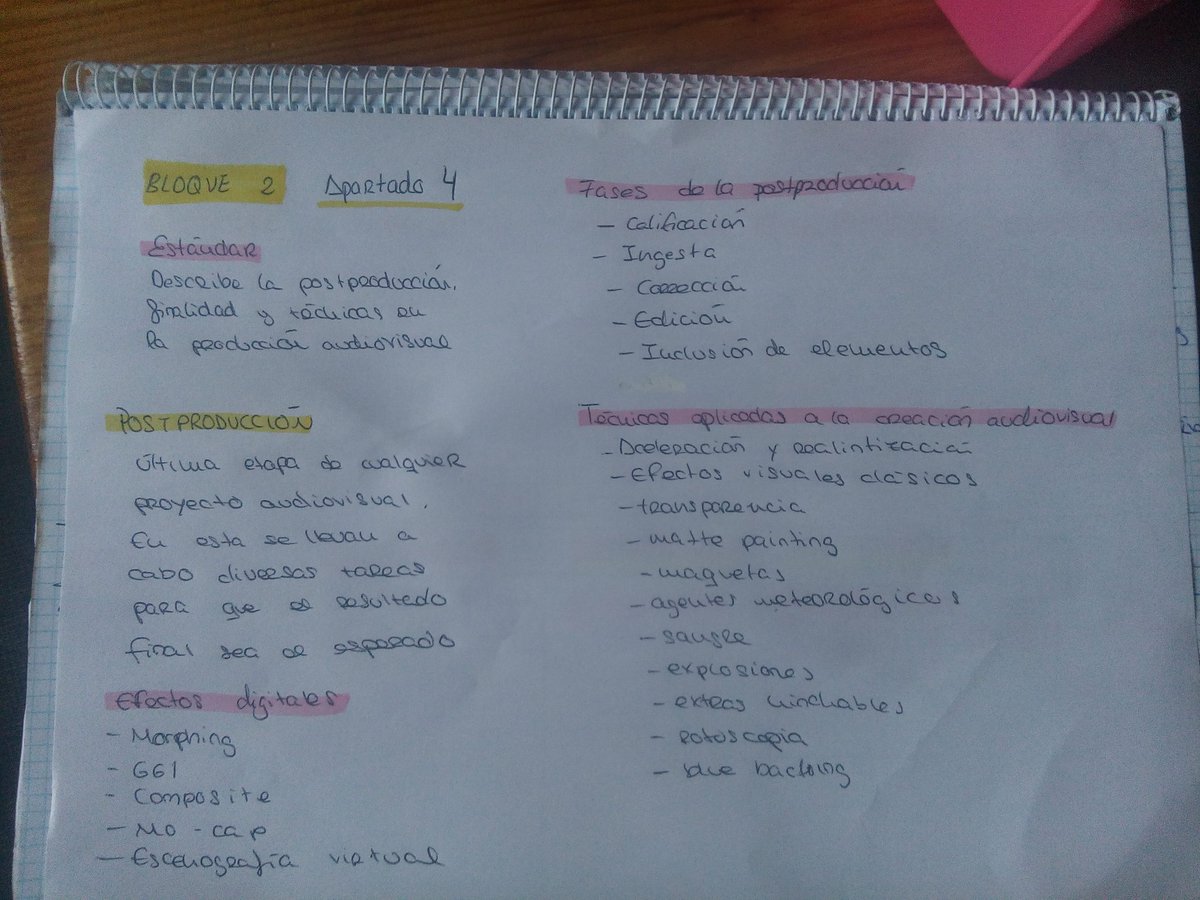 BLOQUE 2 Apartado 4
Estándar
Describe la postproducción,
finalidad y técnicas en
la producción audiovisual
POSTPRODUCCIÓN
Última etapa de cualquier
proyecto audiovisual.
En esta se llevan a
cabo diversas tareas
para que el resultado
final sea el esperado
Efectos digitales
- Morphing
- GGI
- Composite
- Mo-cap
- Escenografía virtual
Fases de la postproducción
- Calificación
- Ingesta
- Corrección
- Edición
- Inclusión de elementos
Técnicas aplicadas a la creación audiovisual
- Aceleración y realintización
- Efectos visuales clásicos
- transparencia
- matte painting
- maquetas
- agentes meteorológicos
- sangre
- explosiones
- extras hinchables
- rotoscopia
- blue backing